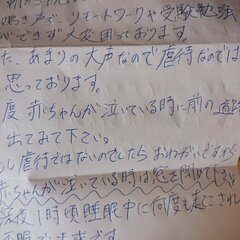 鳴き声で、リモートワークや受験勉強
ができず大変困っております。
た、あまりの大声なので虐待なのでは
思っております。
度、赤ちゃんが泣いている時に前の道路
出てみて下さい。
し虐待ではないのでしたらおねがいですから
赤ちゃんが泣いている時は窓を閉めて下さい
深夜1時頃睡眠中に何度も起こされ